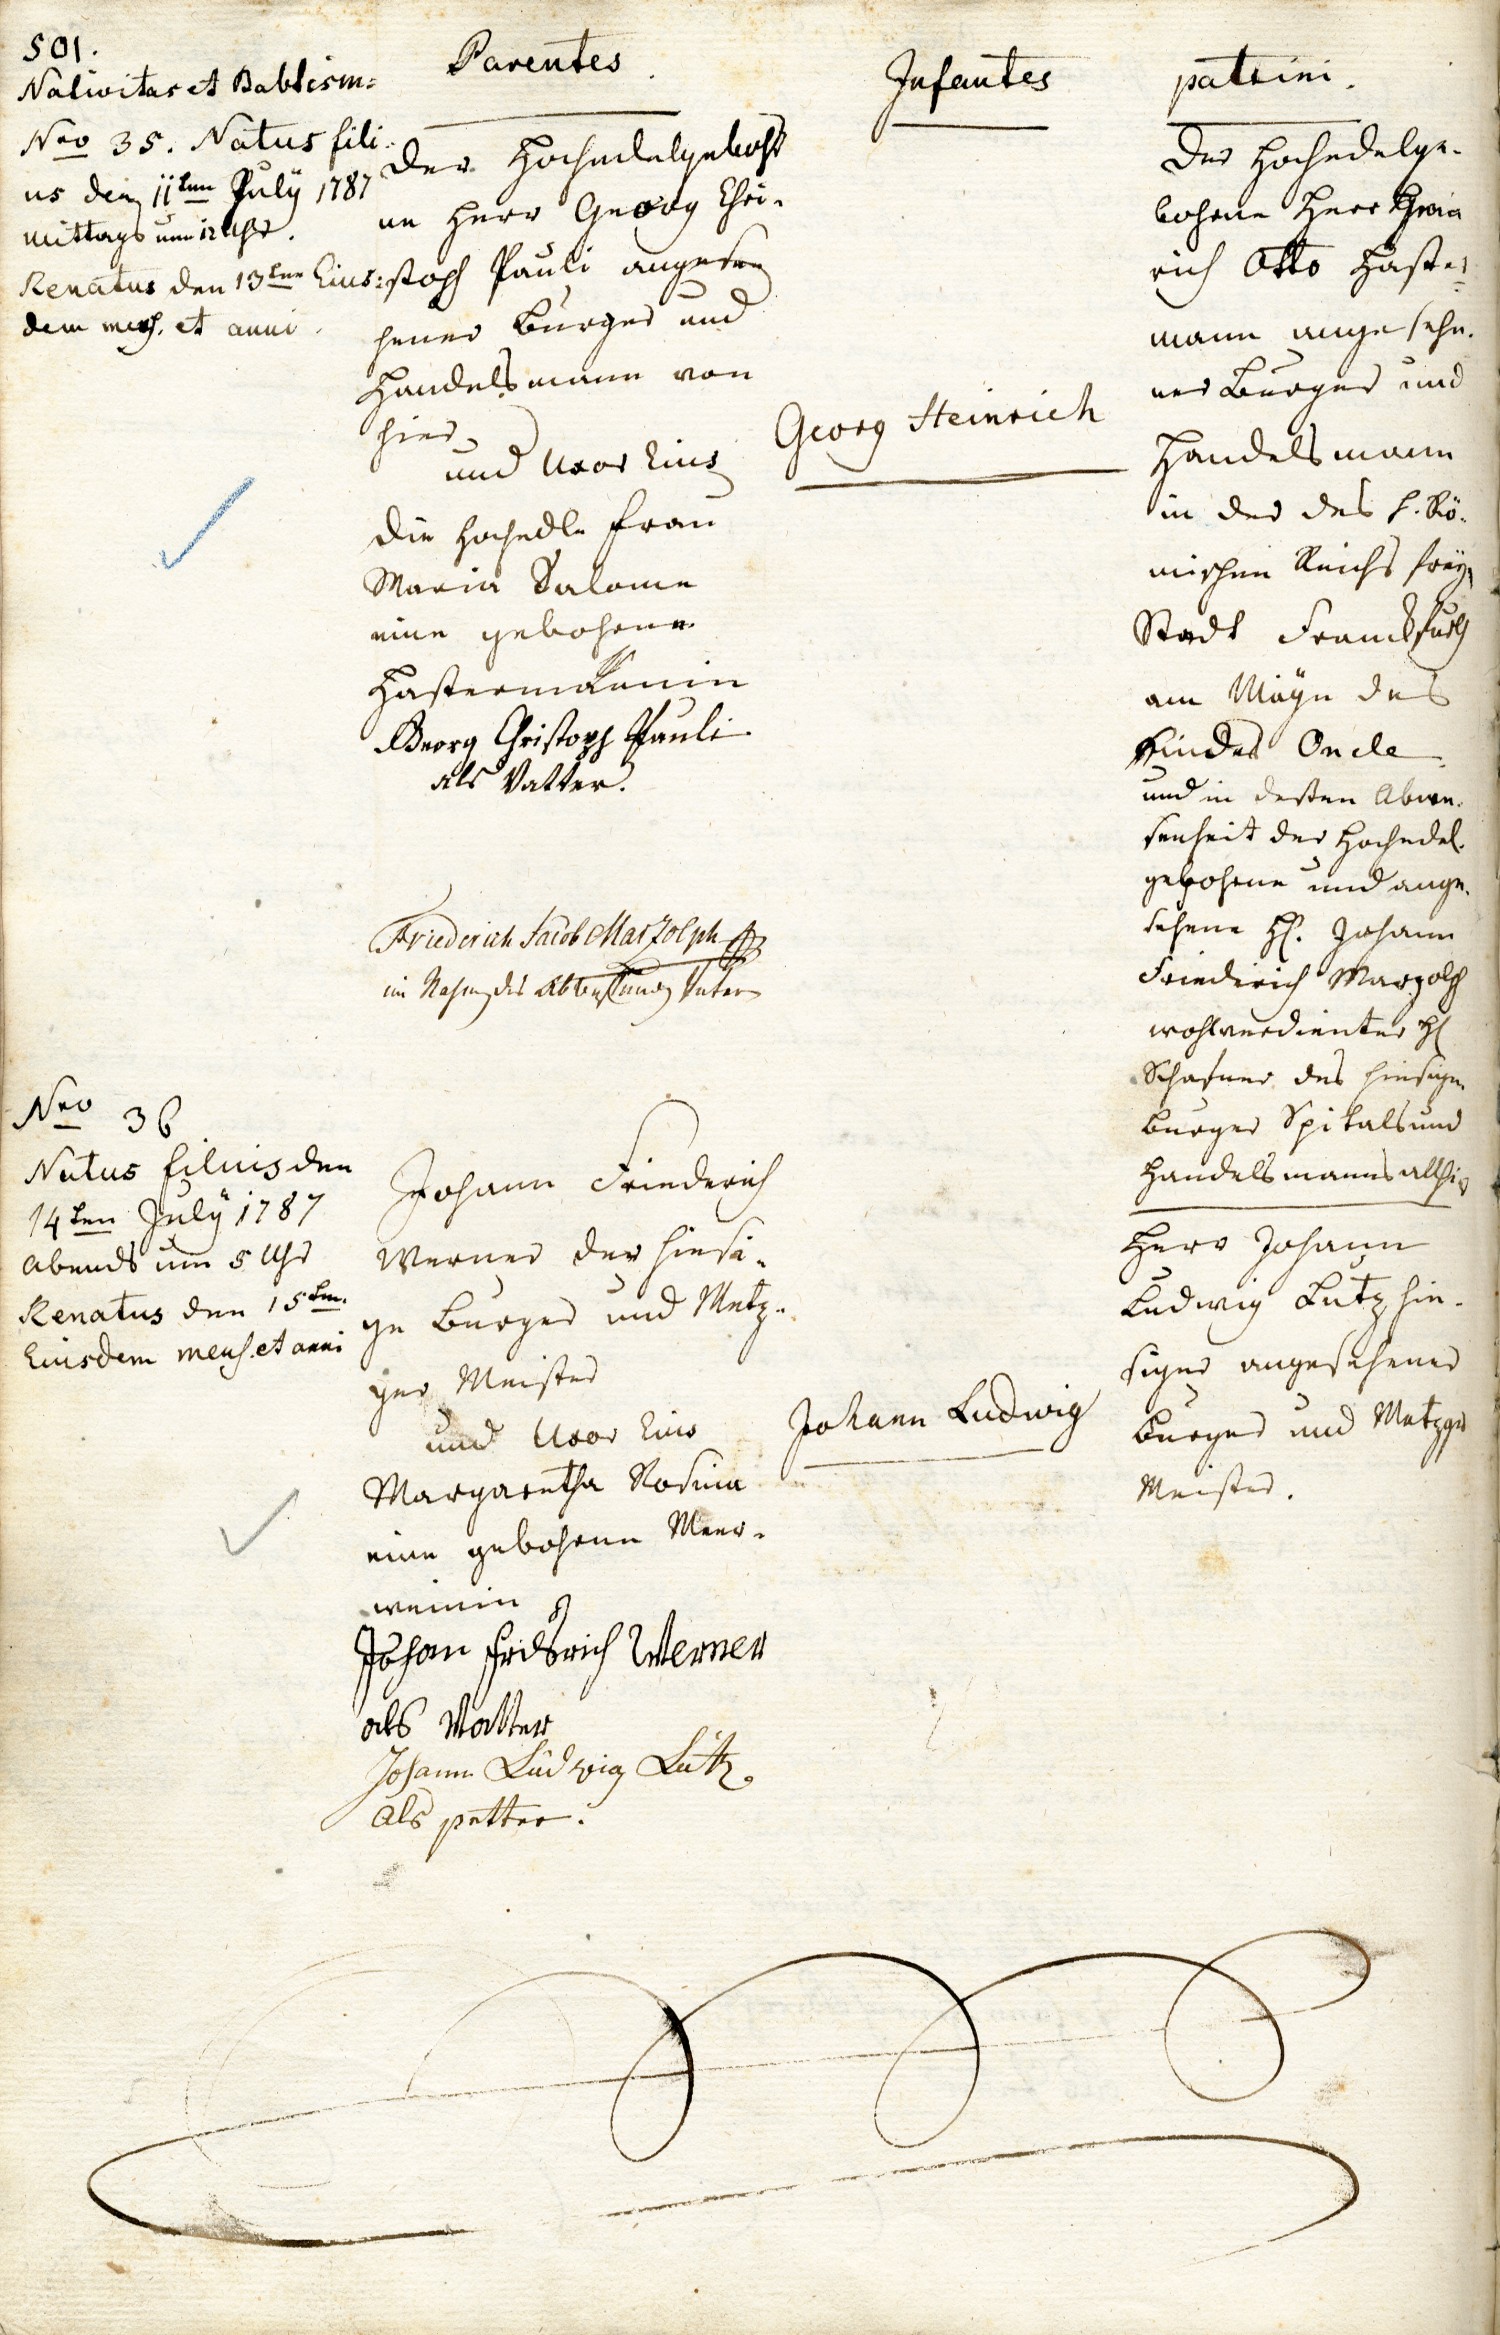 501.
Nativitas et Babtism=
Nro 35. Natus fili=
us den 11ten July 1787
mittags um 12 Uhr.
Renatus den 13ten Eius=
dem mens. et anni.
Parentes
Der Hochedelgebohr
ne Herr Georg Chri-
stoph Pauli angese
hener Burger und
Handelsmann von
hier
und Uxor Eius
die Hochedle Frau
Maria Salome
eine gebohrne
Hastermännin
Georg Christoph Pauli
als Vatter.
Friederich Jacob Marzolph
im Nahmen des
Infantes
Georg Heinrich
patrini.
Der Hochedelge-
bohrne Herr
rich Otto Haster
mann angesehe-
ner Burger und
Handelsmann
in der des H. Rö-
mischen Reichs frey
Stadt Franckfurth
am Mayn des
Kindes Oncle
und in dessen Abwe-
senheit der Hochedel-
gebohrne und ange-
sehene H. Johann
Friederich Marzolph
wohlverdienter H
Schafner des hiesigen
Burger Spitals und
Handelsmanns allhier
Nro 36
Natus filius den
14ten July 1787
Abends um 5 Uhr
Renatus den 15ten
Eiusdem mens. et anni
Johann Friederich
Werner der hiesi-
ge Burger und Metz-
ger Meister
und Uxor Eius
Margaretha Rosina
eine gebohrne Meer-
weinin
Johan Fridrich Werner
als Vatter
Johann Ludwig Lutz
als petter.
Johann Ludwig
Herr Johann
Ludwig Lutz hie-
siger angesehener
Burger und Metzger
Meister.